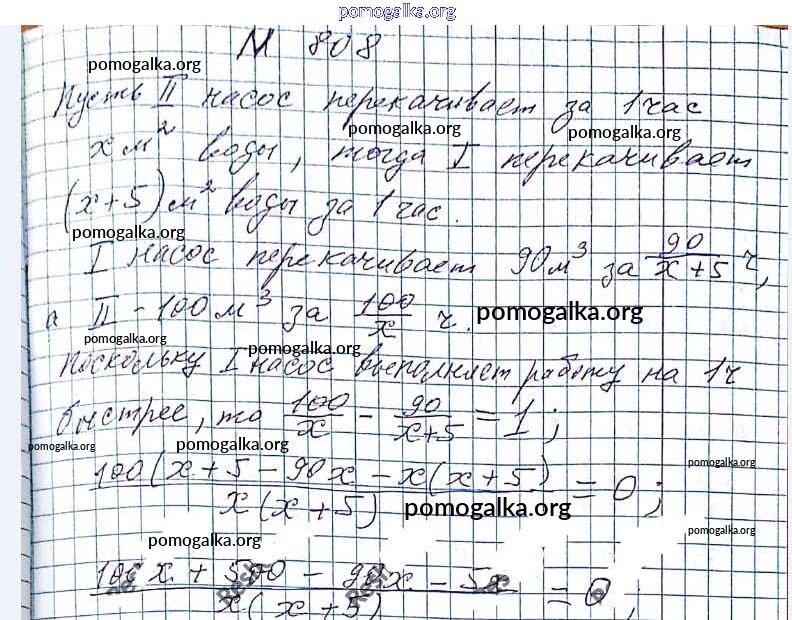 pomogalka.org
№ 808
pomogalka.org
Пусть II насос перекачивает за 1 час
pomogalka.org pomogalka.org
x м² воды, тогда I перекачивает
(x+5) м² воды за 1 час.
pomogalka.org
I насос перекачивает 90 м³ за 90/(x+5) ч,
а II - 100 м³ за 100/x ч. pomogalka.org
pomogalka.org
Поскольку I насос выполняет работу на 1 ч
быстрее, то 100/x - 90/(x+5) = 1;
pomogalka.org pomogalka.org pomogalka.org
100(x+5 - 90x - x(x+5)
x(x+5) = 0;
pomogalka.org pomogalka.org
pomogalka.org
100x + 500 - 90x - 5x
x(x+5) = 0;